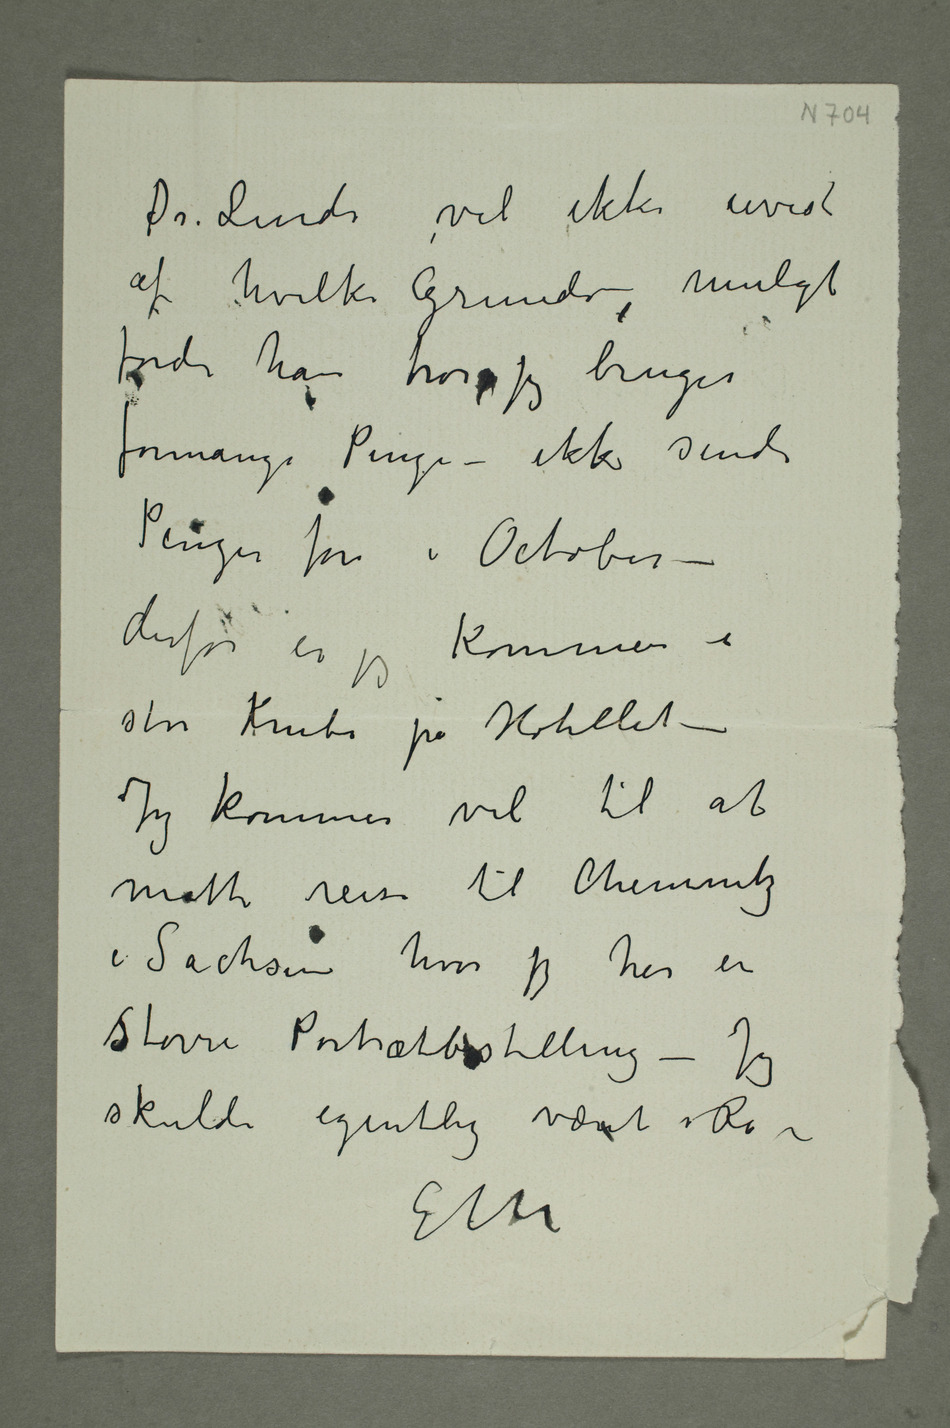 N 704
Dr. Linde vil ikke uvist
af hvilke Grunde, muligt
fordi han tror jeg bruger
formange Penge – ikke sende
Penger før i October –
derfor er jeg kommen i
stor Knibe på Hotellet –
Jeg kommer vel til at
måtte reise til Chemnitz
i Sachsen hvor jeg har en
Større Portrætbestilling – Jeg
skulde egentlig været i Ro –
EM